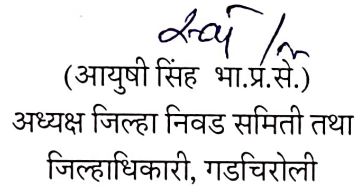 (आयुषी सिंह भा.प्र.से.)
अध्यक्ष जिल्हा निवड समिती तथा
जिल्हाधिकारी, गडचिरोली